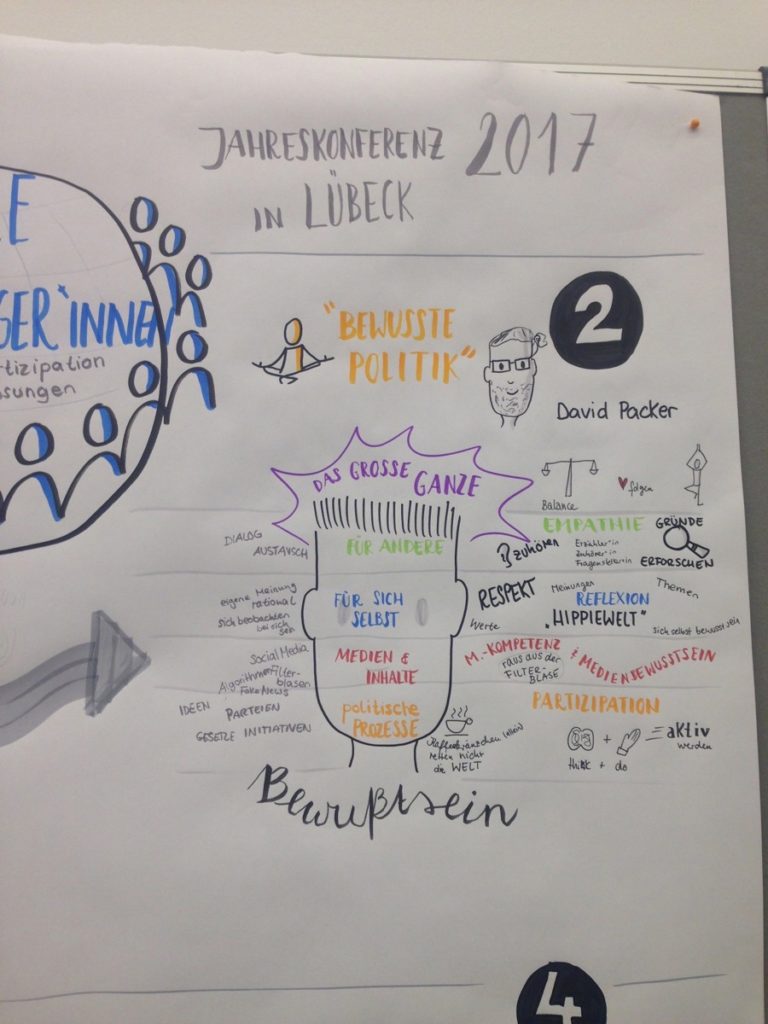 JAHRESKONFERENZ 2017
IN LÜBECK
GER*INNEN
tizipation
sungen
2
"BEWUSSTE
POLITIK"
David Packer
DAS GROSSE GANZE
Balance
folgen
DIALOG
AUSTAUSCH
FÜR ANDERE
EMPATHIE
zuhören
Erzähler*in
Zuhörer*in
Fragensteller*in
GRÜNDE
ERFORSCHEN
eigene Meinung
rational
sich beobachten
bei sich
sein
FÜR SICH
SELBST
RESPEKT
Werte
Meinungen
Themen
REFLEXION
"HIPPIEWELT"
sich selbst bewusst sein
Social Media
Algorithmen Filter-
blasen
Fake News
MEDIEN &
INHALTE
M.-KOMPETENZ
raus aus der
FILTER-
BLASE
MEDIENBEWUSTSEIN
IDEEN PARTEIEN
GESETZE INITIATIVEN
politische
PROZESSE
Kaffeekränzchen
retten nicht
die WELT
PARTIZIPATION
+ = aktiv
werden
think + do
Bewußtsein
4